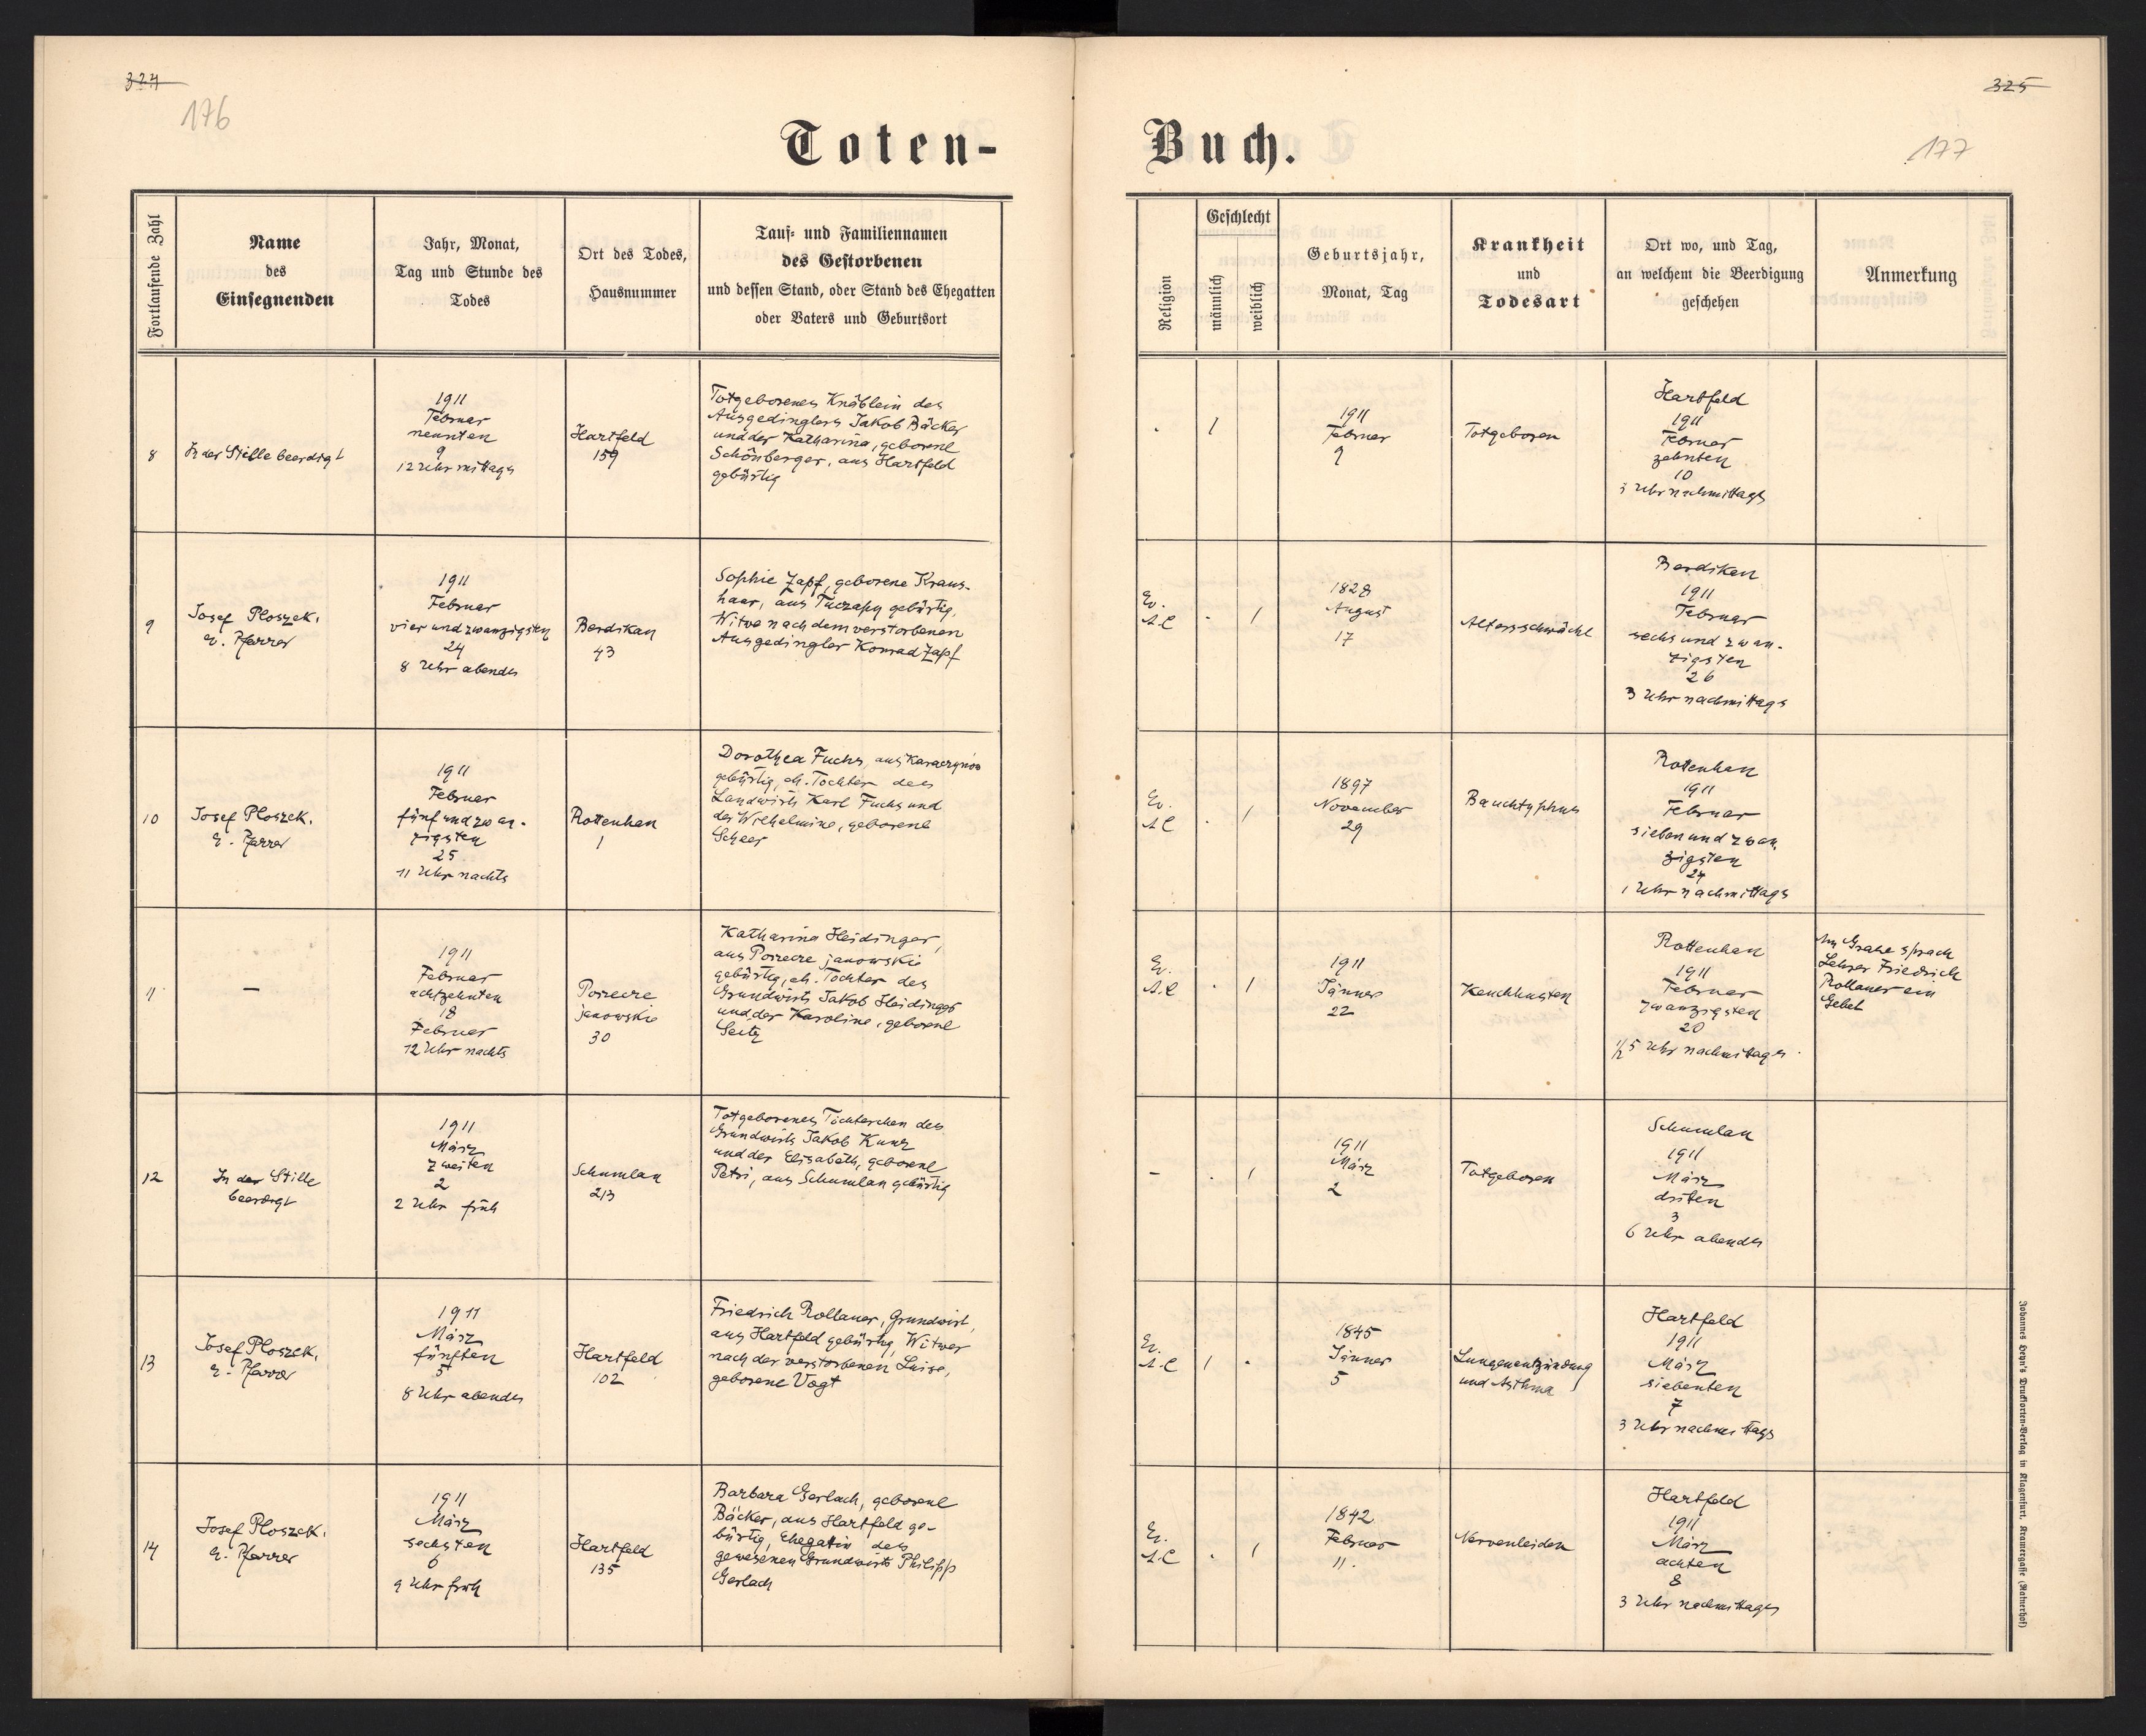 324
176
325
177
Toten-
Buch.
Fortlaufende Zahl
Name
des
Einsegnenden
Jahr, Monat,
Tag und Stunde des
Todes
Ort des Todes,
Hausnummer
Tauf- und Familiennamen
des Gestorbenen
und dessen Stand, oder Stand des Ehegatten
oder Vaters und Geburtsort
Religion
Geschlecht
männlich
weiblich
Geburtsjahr,
Monat, Tag
Krankheit
und
Todesart
Ort wo, und Tag,
an welchem die Beerdigung
geschehen
Anmerkung
8
In der Stille beerdigt
1911
Februar
neunten
9
12 Uhr mittags
Hartfeld
159
Totgeborenes Knäblein des
Ausgedinglers Jakob Bäcker
und der Katharina, geborene
Schönberger, aus Hartfeld
gebürtig
.
1
1911
Februar
9
Totgeboren
Hartfeld
1911
Februar
zehnten
10
3 Uhr nachmittags
9
Josef Ploszek.
e. Pfarrer
1911
Februar
vier und zwanzigsten
24
8 Uhr abends
Berdikau
43
Sophie Zapf, geborene Kraus-
haar, aus Tuczapy gebürtig,
Witwe nach dem verstorbenen
Ausgedingler Konrad Zapf
Ev.
A.C
.
1
1828
August
17
Altersschwäche
Berdikau
1911
Februar
sechs und zwan-
zigsten
26
3 Uhr nachmittags
10
Josef Ploszek.
e. Pfarrer
1911
Februar
fünf und zwan-
zigsten
25
11 Uhr nachts
Rottenhan
1
Dorothea Fuchs, aus Karaczynów
gebürtig, eh. Tochter des
Landwirts Karl Fuchs und
der Wilhelmine, geborene
Scheer
Ev.
A C
.
1
1897
November
29
Bauchtyphus
Rottenhan
1911
Februar
sieben und zwan
zigsten
27
1 Uhr nachmittags
11
—
1911
Februar
achtzehnten
18
Februar
12 Uhr nachts
Porzecze
janowskie
30
Katharina Heidinger,
aus Porzecze janowskie
gebürtig, eh. Tochter des
Grundwirts Jakob Heidinger
und der Karoline, geborene
Seitz
Ev.
A.C
.
1
1911
Jänner
22
Keuchhusten
Rottenhan
1911
Februar
zwanzigsten
20
1/2 5 Uhr nachmittags.
Am Grabe sprach
Lehrer Friedrich
Rollauer ein
Gebet
12
In der Stille
beerdigt
1911
März
zweiten
2
2 Uhr früh
Schumlau
213
Totgeborenes Töchterchen des
Grundwirts Jakob Kunz
und der Elisabeth, geborene
Petri, aus Schumlau gebürtig
–
.
1
1911
März
2
Totgeboren
Schumlau
1911
März
driten
3
6 Uhr abends
13
Josef Ploszek.
e. Pfarrer
1911
März
fünften
5
8 Uhr abends
Hartfeld
102
Friedrich Rollauer, Grundwirt,
aus Hartfeld gebürtig, Witwer
nach der verstorbenen Luise,
geborene Vogt
Ev.
A.C
1
.
1845
Jänner
5
Lungenentzündung
und Asthma
Hartfeld
1911
März
siebenten
7
3 Uhr nachmittags
14
Josef Ploszek.
e. Pfarrer
1911
März
sechsten
6
9 Uhr früh
Hartfeld
135
Barbara Gerlach, geborene
Bäcker, aus Hartfeld ge-
bürtig, Ehegattin des
gewesenen Grundwirts Philipp
Gerlach
Ev.
A.C
.
1
1842
Februar
11.
Nervenleiden
Hartfeld
1911
März
achten
8
3 Uhr nachmittags
Johannes Heyn's Drucksorten-Verlag in Klagenfurt, Kramergasse (Rainerhof)